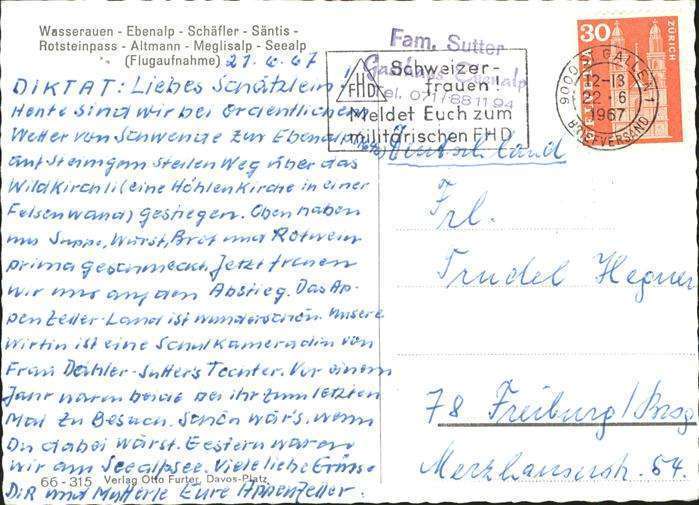 Wasserauen - Ebenalp - Schäfler - Säntis -
Rotsteinpass - Altmann - Meglisalp - Seealp
(Flugaufnahme) 21.6.67
DIKTAT: Liebes Schätzlein!
Heute sind wir bei ordentlichem
Wetter von Schwende zur Ebenalp
auf steinigem steilen Weg über das
Wildkirchli (eine Höhlenkirche in einer
Felsenwand) gestiegen. Oben haben
uns Suppe, Wurst, Brot und Rotwein
prima geschmeckt. Jetzt freuen
wir uns auf den Abstieg. Das Ap-
penzeller-Land ist wunderschön. Unsere
Wirtin ist eine Schulkameradin von
Frau Dähler-Sutters Tochter. Vor einem
Jahr waren beide bei ihr zum letzten
Mal zu Besuch. Schön wär's, wenn
Du dabei wärst. Gestern waren
wir am Seealpsee. Viele liebe Grüsse
Dir und Mutterle Eure Appenzeller.
66 - 315 Verlag Otto Furter, Davos-Platz
Fam. Sutter
Gasthaus Ebenalp
Tel. 071/88 11 94
FHD
Schweizer-
frauen!
Meldet Euch zum
militärischen FHD
9000 ST. GALLEN 1
12-13
22.-6
1967
BRIEFVERSAND
30
HELVETIA
ZÜRICH
Deutschland
Frl.
Trudel Hegner
78 Freiburg/Brsg
Merzhauserstr. 54.